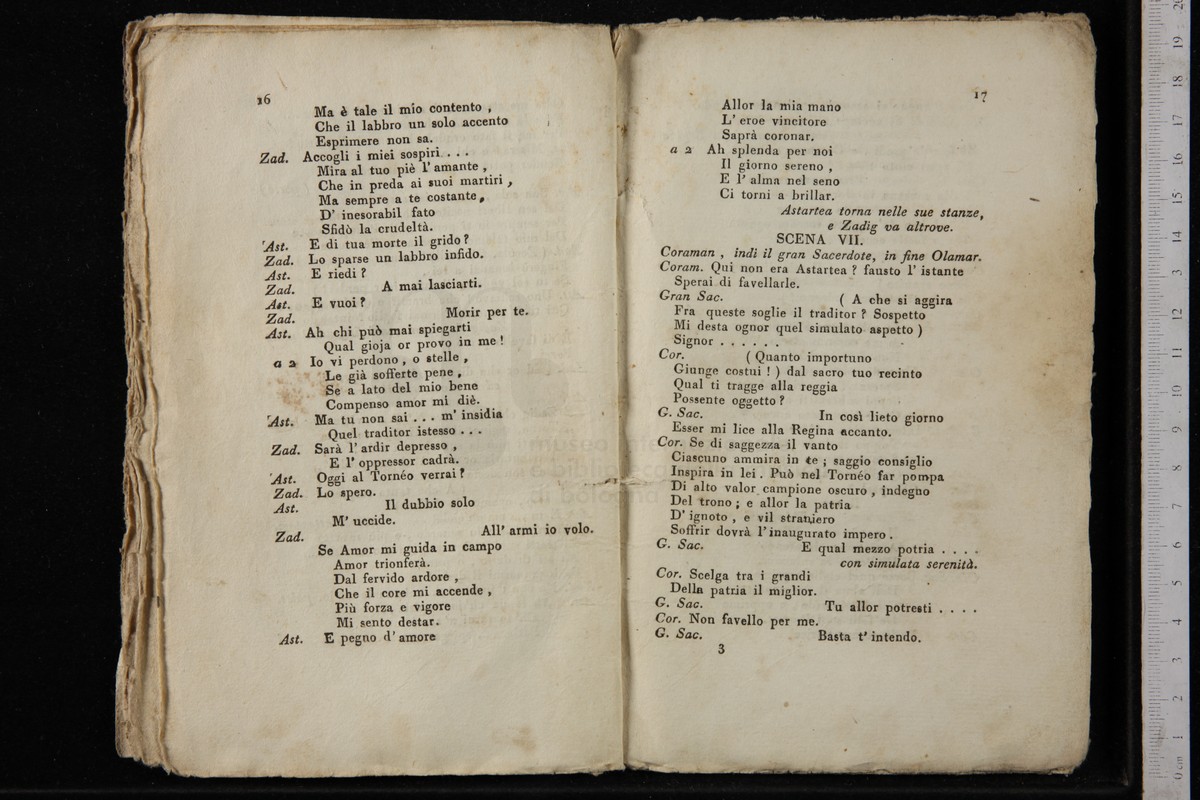 16
Ma è tale il mio contento ,
Che il labbro un solo accento
Esprimere non sa.
Zad. Accogli i miei sospiri . . .
Mira al tuo piè l' amante ,
Che in preda ai suoi martiri ,
Ma sempre a te costante ,
D' inesorabil fato
Sfidò la crudeltà.
Ast. E di tua morte il grido ?
Zad. Lo sparse un labbro infido.
Ast. E riedi ?
Zad. A mai lasciarti.
Ast. E vuoi ?
Zad. Morir per te.
Ast. Ah chi può mai spiegarti
Qual gioja or provo in me !
a 2 Io vi perdono , o stelle ,
Le già sofferte pene ,
Se a lato del mio bene
Compenso amor mi diè.
Ast. Ma tu non sai . . . m' insidia
Quel traditor istesso . . .
Zad. Sarà l' ardir depresso ,
E l' oppressor cadrà.
Ast. Oggi al Tornéo verrai ?
Zad. Lo spero.
Ast. Il dubbio solo
M' uccide.
Zad. All' armi io volo.
Se Amor mi guida in campo
Amor trionferà.
Dal fervido ardore ,
Che il core mi accende ,
Più forza e vigore
Mi sento destar.
Ast. E pegno d' amore
17
Allor la mia mano
L' eroe vincitore
Saprà coronar.
a 2 Ah splenda per noi
Il giorno sereno ,
E l' alma nel seno
Ci torni a brillar.
Astartea torna nelle sue stanze,
e Zadig va altrove.
SCENA VII.
Coraman , indi il gran Sacerdote, in fine Olamar.
Coram. Qui non era Astartea ? fausto l' istante
Sperai di favellarle.
Gran Sac. ( A che si aggira
Fra queste soglie il traditor ? Sospetto
Mi desta ognor quel simulato aspetto )
Signor . . . . . .
Cor. ( Quanto importuno
Giunge costui ! ) dal sacro tuo recinto
Qual ti tragge alla reggia
Possente oggetto ?
G. Sac. In così lieto giorno
Esser mi lice alla Regina accanto.
Cor. Se di saggezza il vanto
Ciascuno ammira in te ; saggio consiglio
Inspira in lei . Può nel Tornéo far pompa
Di alto valor campione oscuro , indegno
Del trono ; e allor la patria
D' ignoto , e vil straniero
Soffrir dovrà l' inaugurato impero .
G. Sac. E qual mezzo potria . . . .
con simulata serenità.
Cor. Scelga tra i grandi
Della patria il miglior.
G. Sac. Tu allor potresti . . . .
Cor. Non favello per me.
G. Sac. Basta t' intendo.
3